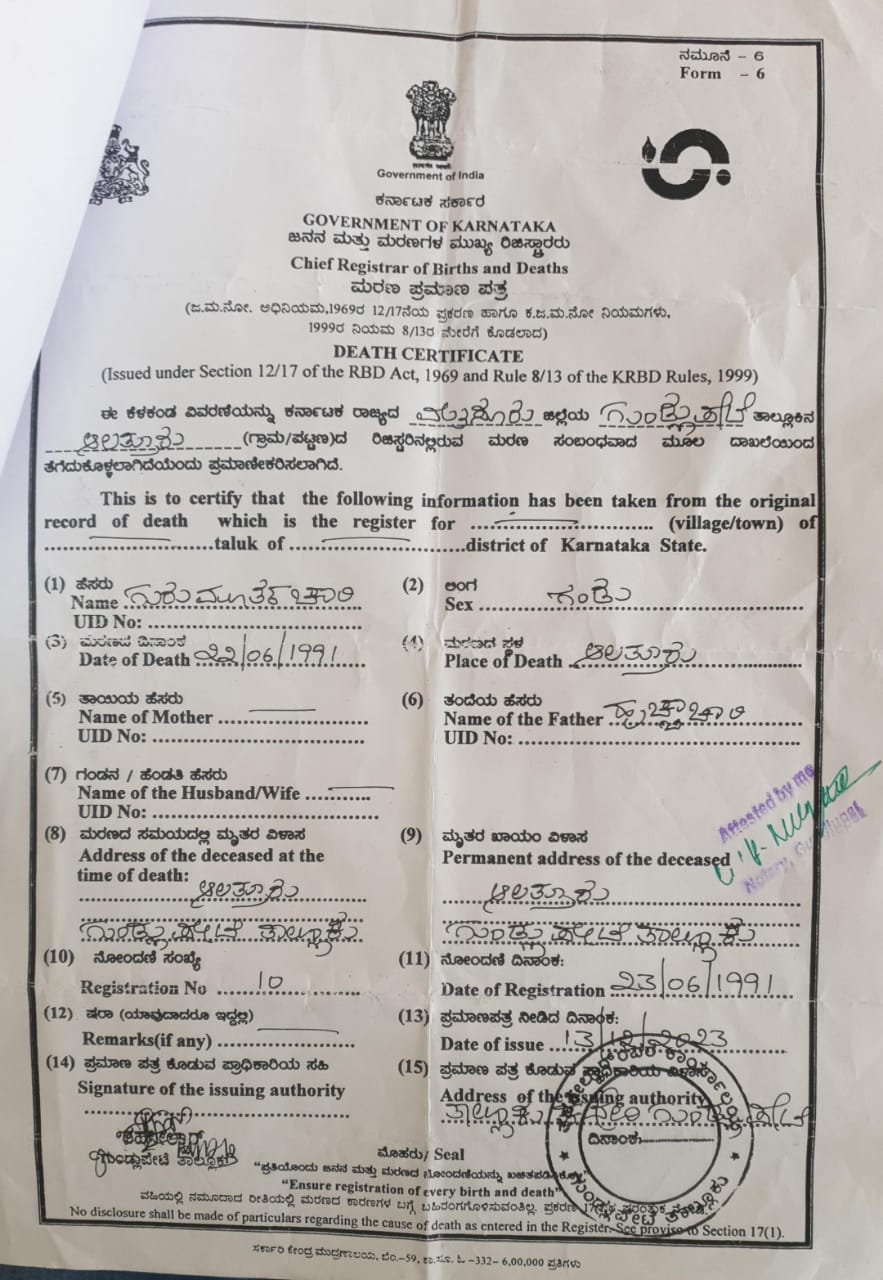 ನಮೂನೆ - 6
Form - 6
Government of India
ಕರ್ನಾಟಕ ಸರ್ಕಾರ
GOVERNMENT OF KARNATAKA
ಜನನ ಮತ್ತು ಮರಣಗಳ ಮುಖ್ಯ ರಿಜಿಸ್ಟ್ರಾರರು
Chief Registrar of Births and Deaths
ಮರಣ ಪ್ರಮಾಣ ಪತ್ರ
(ಜ.ಮ.ನೋ. ಅಧಿನಿಯಮ,1969ರ 12/17ನೆಯ ಪ್ರಕರಣ ಹಾಗೂ ಕ.ಜ.ಮ.ನೋ ನಿಯಮಗಳು,
1999ರ ನಿಯಮ 8/13ರ ಮೇರೆಗೆ ಕೊಡಲಾದ)
DEATH CERTIFICATE
(Issued under Section 12/17 of the RBD Act, 1969 and Rule 8/13 of the KRBD Rules, 1999)
ಈ ಕೆಳಕಂಡ ವಿವರಣೆಯನ್ನು ಕರ್ನಾಟಕ ರಾಜ್ಯದ ಜಿಲ್ಲೆಯ ಗುಂಡ್ಲುಪೇಟೆ ತಾಲ್ಲೂಕಿನ
ಆಲತ್ತೂರು (ಗ್ರಾಮ/ಪಟ್ಟಣ)ದ ರಿಜಿಸ್ಟರಿನಲ್ಲಿರುವ ಮರಣ ಸಂಬಂಧವಾದ ಮೂಲ ದಾಖಲೆಯಿಂದ
ತೆಗೆದುಕೊಳ್ಳಲಾಗಿದೆಯೆಂದು ಪ್ರಮಾಣೀಕರಿಸಲಾಗಿದೆ.
This is to certify that the following information has been taken from the original
record of death which is the register for (village/town) of
taluk of district of Karnataka State.
(1) ಹೆಸರು
Name ಗುರುಮೂರ್ತಾಚಾರಿ
UID No:
(2) ಲಿಂಗ
Sex ಗಂಡು
(3) ಮರಣದ ದಿನಾಂಕ
Date of Death 22/06/1991
(4) ಮರಣದ ಸ್ಥಳ
Place of Death ಆಲತ್ತೂರು
(5) ತಾಯಿಯ ಹೆಸರು
Name of Mother
UID No:
(6) ತಂದೆಯ ಹೆಸರು
Name of the Father
UID No:
(7) ಗಂಡನ / ಹೆಂಡತಿ ಹೆಸರು
Name of the Husband/Wife
UID No:
(8) ಮರಣದ ಸಮಯದಲ್ಲಿ ಮೃತರ ವಿಳಾಸ
Address of the deceased at the
time of death:
ಆಲತ್ತೂರು
ಗುಂಡ್ಲುಪೇಟೆ ತಾಲ್ಲೂಕು
(9) ಮೃತರ ಖಾಯಂ ವಿಳಾಸ
Permanent address of the deceased
ಆಲತ್ತೂರು
ಗುಂಡ್ಲುಪೇಟೆ ತಾಲ್ಲೂಕು
Attested by me
Notary,
(10) ನೋಂದಣಿ ಸಂಖ್ಯೆ
Registration No 10
(11) ನೋಂದಣಿ ದಿನಾಂಕ:
Date of Registration 23/06/1991
(12) ಷರಾ (ಯಾವುದಾದರೂ ಇದ್ದಲ್ಲಿ)
Remarks(if any)
(13) ಪ್ರಮಾಣಪತ್ರ ನೀಡಿದ ದಿನಾಂಕ:
Date of issue 13/12/2023
(14) ಪ್ರಮಾಣ ಪತ್ರ ಕೊಡುವ ಪ್ರಾಧಿಕಾರಿಯ ಸಹಿ
Signature of the issuing authority
(15) ಪ್ರಮಾಣ ಪತ್ರ ಕೊಡುವ ಪ್ರಾಧಿಕಾರಿಯ ವಿಳಾಸ
Address of the issuing authority
ತಾಲ್ಲೂಕು ಕಛೇರಿ ಗುಂಡ್ಲುಪೇಟೆ
ದಿನಾಂಕ:
ತಹಶೀಲ್ದಾರ್
ಗುಂಡ್ಲುಪೇಟೆ ತಾಲ್ಲೂಕು
ಮೊಹರು/ Seal
"ಪ್ರತಿಯೊಂದು ಜನನ ಮತ್ತು ಮರಣದ ನೋಂದಣಿಯನ್ನು ಖಚಿತಪಡಿಸಿಕೊಳ್ಳಿ"
"Ensure registration of every birth and death"
ವಹಿಯಲ್ಲಿ ನಮೂದಾದ ರೀತಿಯಲ್ಲಿ ಮರಣದ ಕಾರಣಗಳ ಬಗ್ಗೆ ಬಹಿರಂಗಗೊಳಿಸುವಂತಿಲ್ಲ. ಪ್ರಕರಣ
No disclosure shall be made of particulars regarding the cause of death as entered in the Register. See proviso to Section 17(1).
ಸರ್ಕಾರಿ ಕೇಂದ್ರ ಮುದ್ರಣಾಲಯ, ಬೆಂ.-59, ಕಾ.ಸೂ. ಓ -332- 6,00,000 ಪ್ರತಿಗಳು